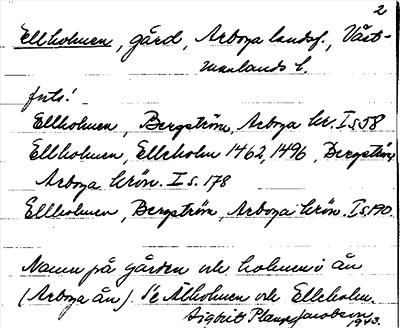 2
Ellholmen, gård, Arboga landsf., Väst-
manlands l.
fnls!
Ellholmen, Bergström, Arboga kr. I s. 58
Ellholmen, Elleholm 1462, 1496, Bergström
Arboga krön. I s. 178
Ellholmen, Bergström, Arboga krön. I s. 190.
Namn på gården och holmen i ån
(Arboga ån). Se Älholmen och Elleholm.
Sigbrit Plænge Jacobson
1943.